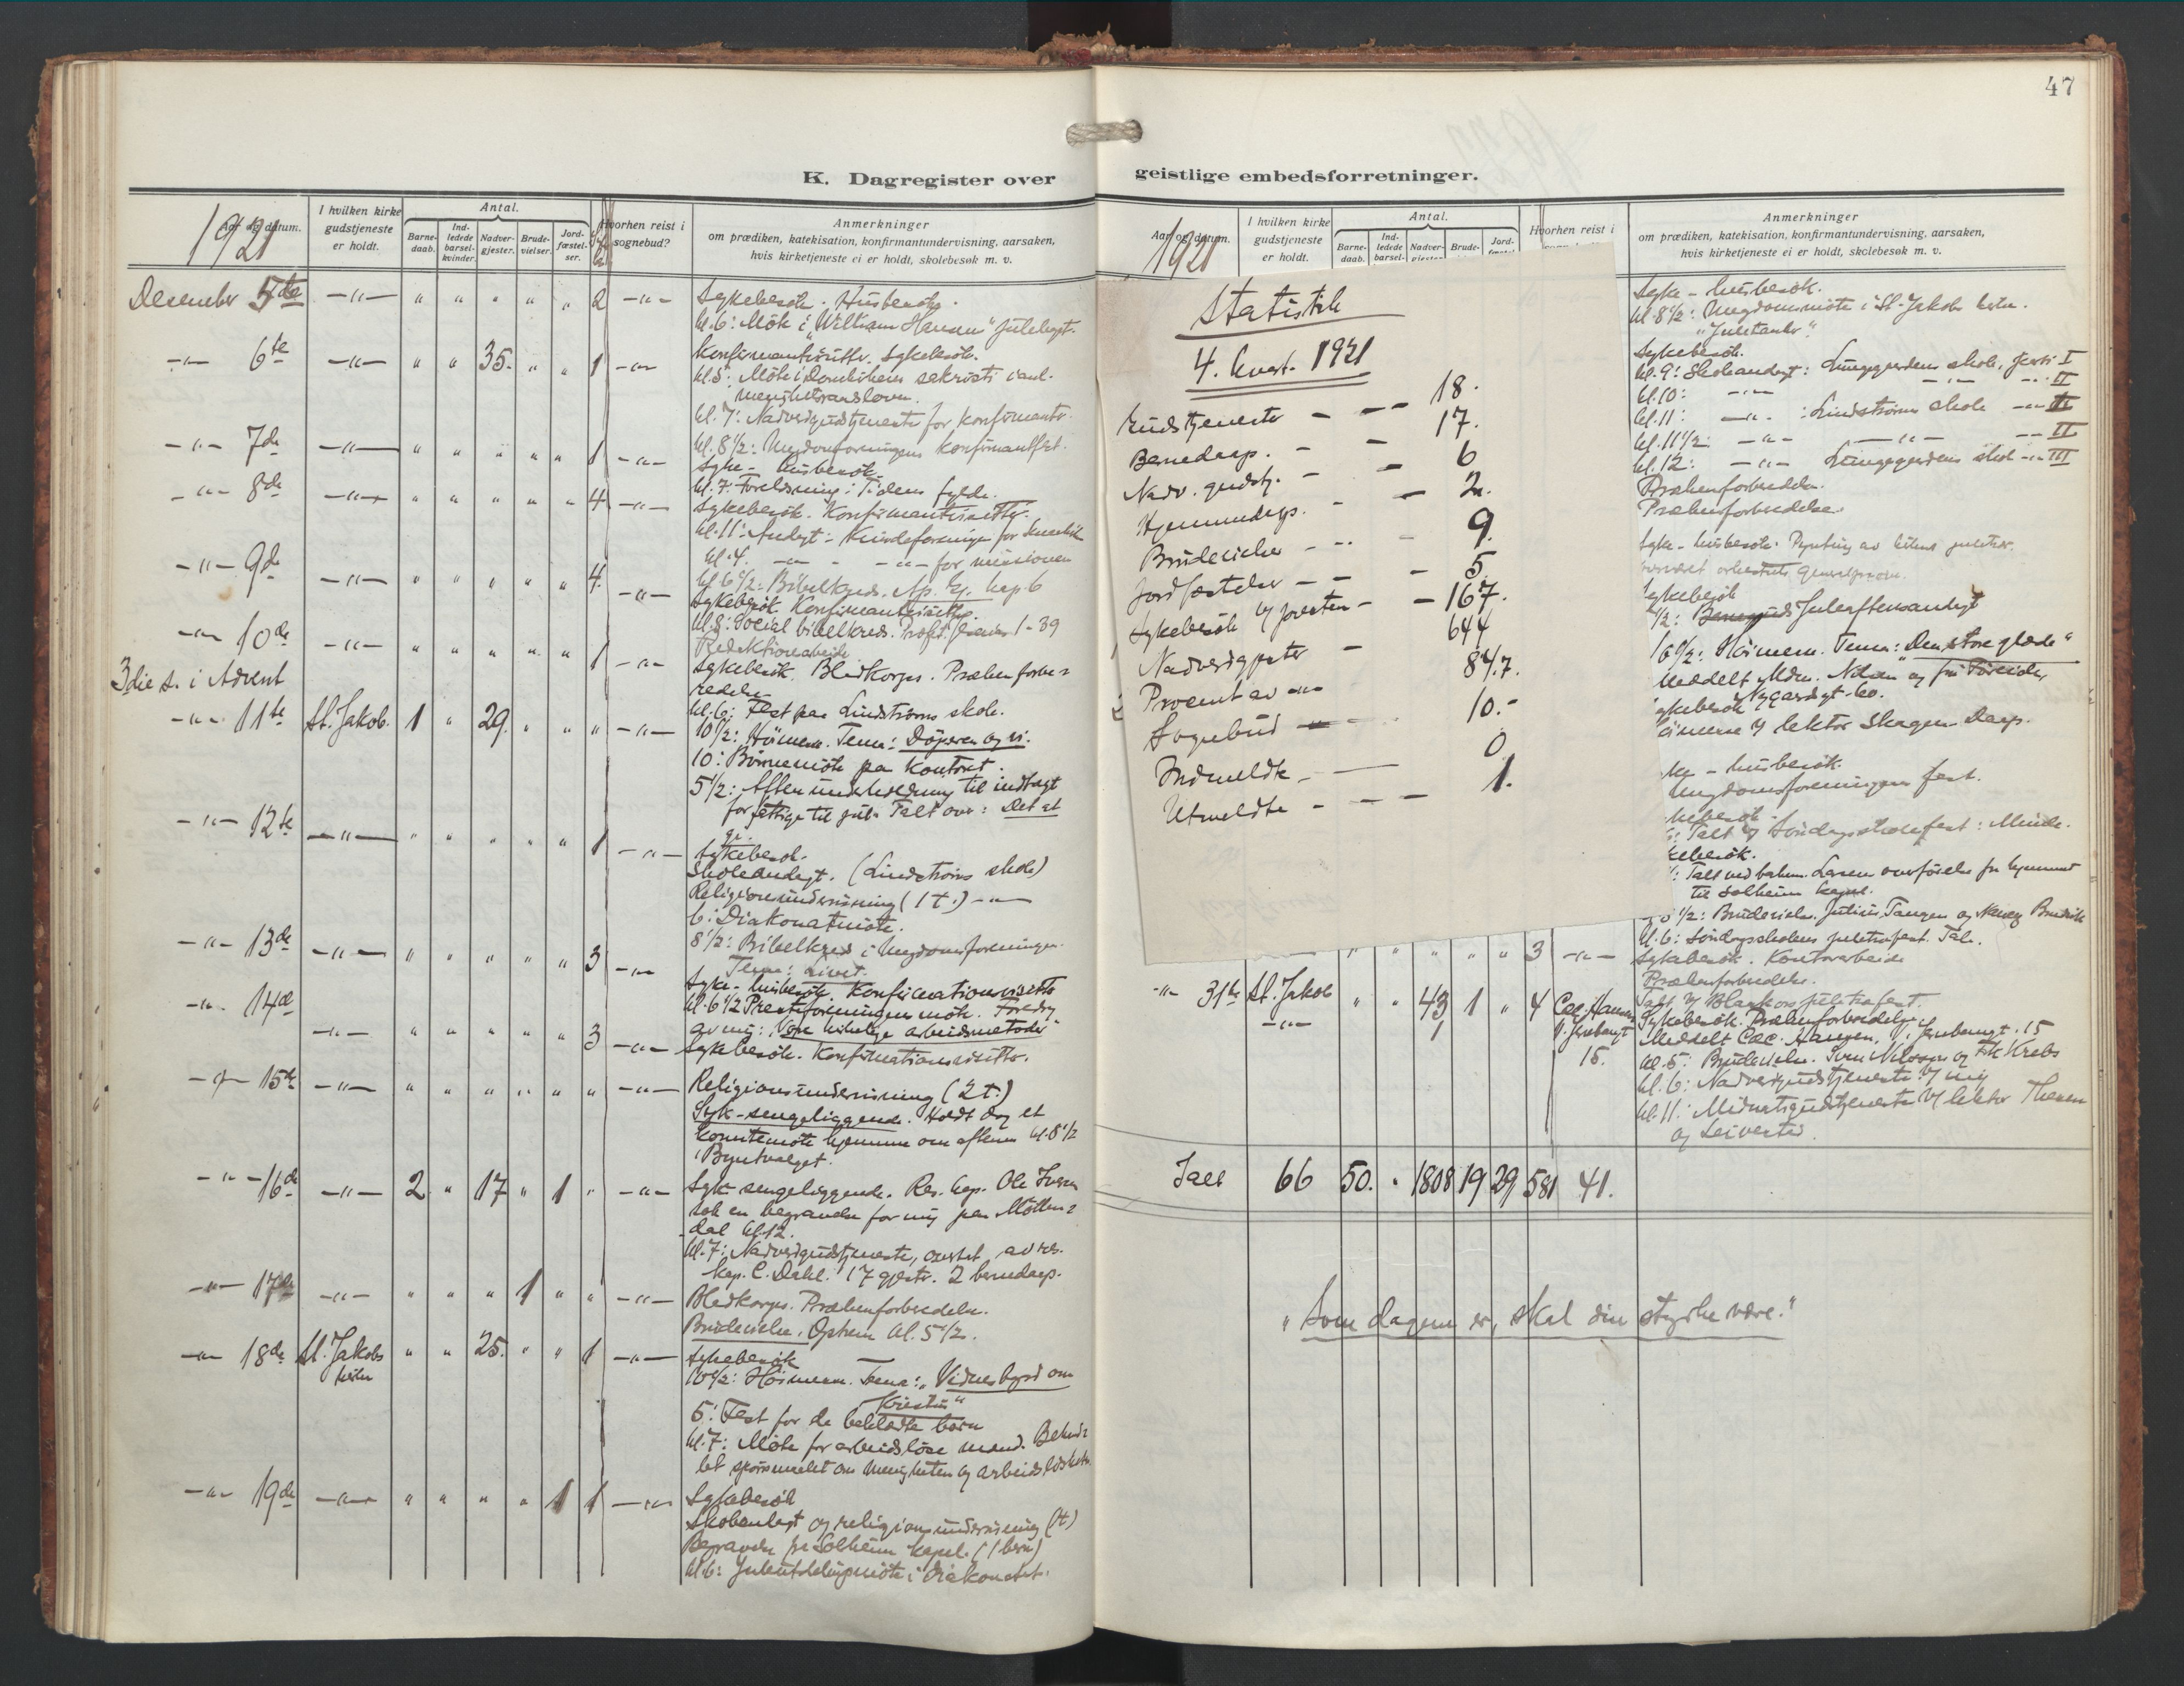 47
K. Dagregister over
geistlige embedsforretninger.
Aar og datum.
1921
I hvilken kirke
gudstjeneste
er holdt.
Antal.
Barne-
daab.
Ind-
ledede
barsel-
kvinder.
Nadver-
gjester.
Brude-
vielser.
Jord-
fæstel-
ser.
Hvorhen reist i
sognebud?
Anmerkninger
om prædiken, katekisation, konfirmantundervisning, aarsaken,
hvis kirketjeneste ei er holdt, skolebesøk m. v.
Desember 5te -"- " " " " " 2 -"- Sykebesøk. Husbesøk.
kl. 6: Møte i "William Hansen" julelegat.
-"- 6te -"- " " 35. " " 1 -"- Konfirmantvisitter. Sykebesøk.
kl. 5: Møte i Domkirkens sakristi i anl.
menighetsraadsloven.
kl. 7: Nadverdgudstjeneste for konfirmanter.
kl. 8½: Ungdomsforeningens konfirmantfest.
-"- 7de -"- " " " " " 1 -"- Syke- husbesøk
kl. 7: Foreldsning: Tidens fylde.
-"- 8de -"- " " " " " 4 -"- Sykebesøk. Konfirmantvisitter.
kl. 11: Andagt: Kvindeforeningen for
kl. 4. -"- - -"- for missionen
kl. 6½: Bibelkreds. Ap. Gj. kap. 6
-"- 9de -"- " " " " " 4 -"- Sykebesøk. Konfirmantvisitter.
kl. 8: Social bibelkreds. 1-39
Redaktionsarbeide
-"- 10de -"- " " " " " 1 -"- Sykebesøk. Blødkorps. Prækenforbe-
redelse
kl. 6: Fest paa Lindstrøms skole.
3die s. i Advent
-"- 11te St. Jakob. 1 " 29. " " " -"- 10½: Høimesse. Tema: Døperen og vi.
10: Børnemøte paa kontoret.
5½: Aftenunderholdning til indtægt
for fattige til jul. Talt over: Det at
gi.
-"- 12te -"- " " " " " 1 -"- Sykebesøk.
Skoleandagt. (Lindstrøms skole)
Religionsundervisning (1 t.) -"-
6: Diakonatmøte.
8½: Bibelkreds i Ungdomsforeningen.
Tema: Livet.
-"- 13de -"- " " " " " 3 -"- Syke- husbesøk. Konfirmationsvisitter
kl. 6½ Presteforeningens møte. Foredrag
av mig: "Vore kirkelige arbeidsmetoder"
-"- 14de -"- " " " " " 3 -"- Sykebesøk. Konfirmationsvisitter.
-"- 15de -"- " " " " " " -"- Religionsundervisning (2 t.)
Syk-sengeliggende. Holdt dog et
komitemøte hjemme om aftenen kl. 8½
-"- 16de -"- 2 " 17 " 1 " -"- Syk sengeliggende. Res. kap. Ole
tok en begravelse for mig paa Møllen-
dal kl. 12.
kl. 7: Nadverdgudstjeneste, av res.
kap. C. Dahl. 17 gjester. 2 barnedaap.
-"- 17de -"- " " " 1 " " -"- Blødkorps. Prækenforberedelse.
Brudevielse. Opheim kl. 5½.
-"- 18de St. Jakobs
kirke " " 25. " " 1 -"- Sykebesøk
10½: Høimesse. Tema: "Vidnesbyrd om
Kristus"
5: Fest for de beklædte børn
kl. 7: Møte for arbeidsløse mænd. Behand-
let spørsmaalet om menigheten og arbeidsløsheten.
-"- 19de -"- " " " " 1 1 -"- Sykebesøk
Skoleandagt og religionsundervisning (1 t)
Begravelse fra Solheim kapel. (1 barn)
kl. 6: Juleutdelingsmøte i Diakonatet.
Aar og datum.
1921
I hvilken kirke
gudstjeneste
er holdt.
Antal.
Barne-
daab.
Ind-
ledede
barsel-
Nadver-
gjester
Brude-
Jord-
Hvorhen reist i
Anmerkninger
om prædiken, katekisation, konfirmantundervisning, aarsaken,
hvis kirketjeneste ei er holdt, skolebesøk m. v.
Statistik
4. kvart. 1921
Gudstjenester - -- 18.
Barnedaap. - - 17.
Nadv. gudstj. - - 6
Hjemmedaap. - - 2.
Brudevielser - -- - 9.
Jordfæstelser - - - 5.
Sykebesøk v/ presten - - 167.
Nadverdgjester - 644
Procent av -"- 84/7.
Sognebud -"- 10.-
Indmeldte - -- 0
Utmeldte - - - 1.
Syke - husbesøk.
kl. 8½: Ungdomsmøte i St. Jakobs kirke.
"Juletanker"
Sykebesøk.
kl. 9: Skoleandagt: Lungegaardens skole, parti I
kl. 10: -"- -"- -"- II
kl. 11: -"- : Lindstrøms skole -"- III
kl. 11½: -"- -"- -"- II
kl. 12: -"- Lungegaardens skole -"- III
Prækenforberedelse.
Prækenforberedelse.
Syke - husbesøk. Pyntning av kirkens juletrær.
orkestrets generalprøve.
Sykebesøk
½: Juleaftensandagt
10½: Høimesse. Tema: "Den store glæde"
Meddelt Mdm. Nilsen og
Nygaardsgt. 60.
v/ lektor Skagen. Daap.
- husbesøk.
Ungdomsforeningens fest.
: Talt v/ Søndagsskolefest: Minde.
: Talt ved bakerm. Larsens overførelse fra hjemmet
til Solheim kapel.
5½: Brudevielse. Julius Tangen og
kl. 6: Søndagsskolens juletræfest. Tale.
" " " " " 3 -"- Sykebesøk. Kontorarbeide
Prækenforberedelse.
Talt v/ Blaakors juletræfest.
-"- 31te St. Jakob
-"- " " 43 1 " 4 Cec. Hansen
15. Sykebesøk. Prækenforberedelse
Meddelt Cec. Hansen, 15
kl. 5: Brudevielse. og Frk Krebs
kl. 6: Nadverdgudstjeneste v/ mig
kl. 11: Midnatsgudstjeneste v/ lektor
og Seierstad.
Ialt 66 50. " 1808 19 29 581 41.
"Som dagen er, skal din styrke være."